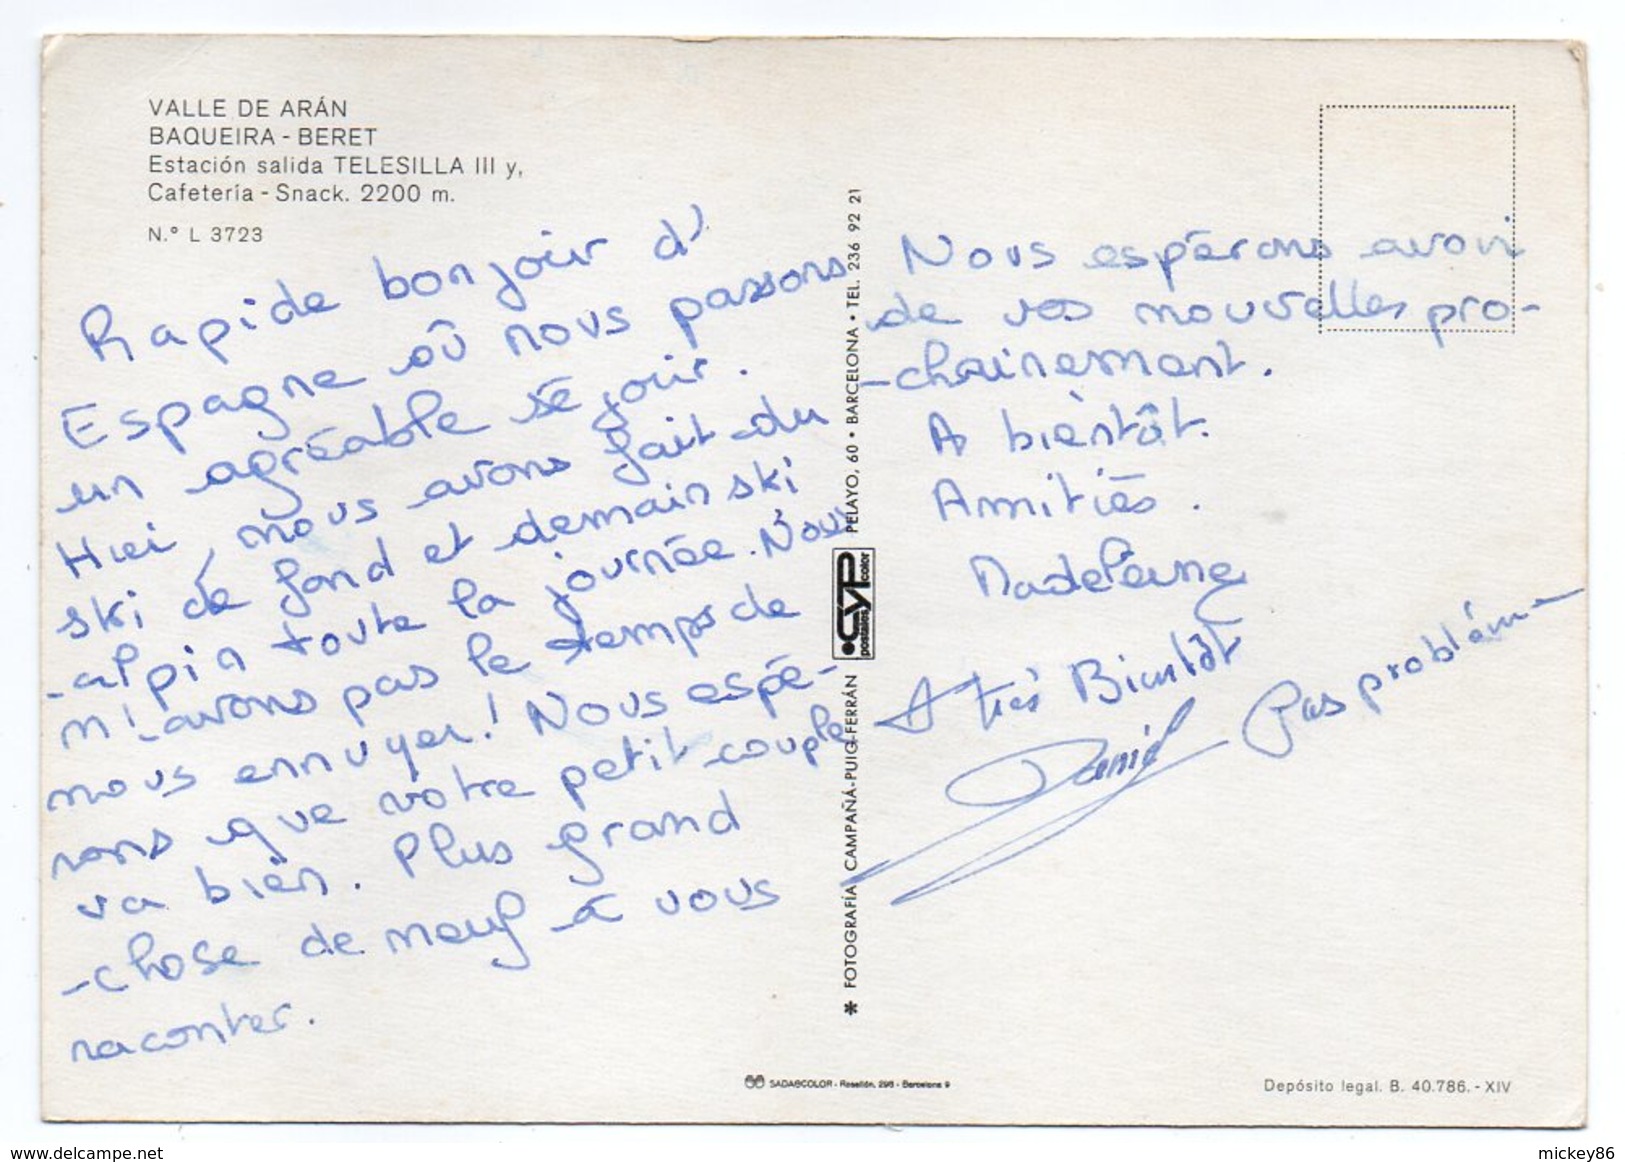 VALLE DE ARÁN
BAQUEIRA - BERET
Estación salida TELESILLA III y,
Cafetería - Snack. 2200 m.
N.° L 3723
Rapide bonjour d'
Espagne où nous passons
un agréable séjour.
Hier, nous avons fait du
ski de fond et demain ski
alpin toute la journée. Nous
n'avons pas le temps de
nous ennuyer! Nous espé-
rons que votre petit couple
va bien. Plus grand
-chose de neuf à vous
raconter.
Nous espérons avoir
de vos nouvelles pro-
-chainement.
A bientôt.
Amitiés.
Madeleine
A très Bientôt
Daniel
Pas problème
* FOTOGRAFÍA CAMPAÑÁ-PUIG-FERRÁN
CYP
postales color
PELAYO, 60 • BARCELONA • TEL. 236 92 21
SADAGCOLOR - Rosellón, 298 - Barcelona 9
Depósito legal. B. 40.786. - XIV
delcampe.net
mickey86